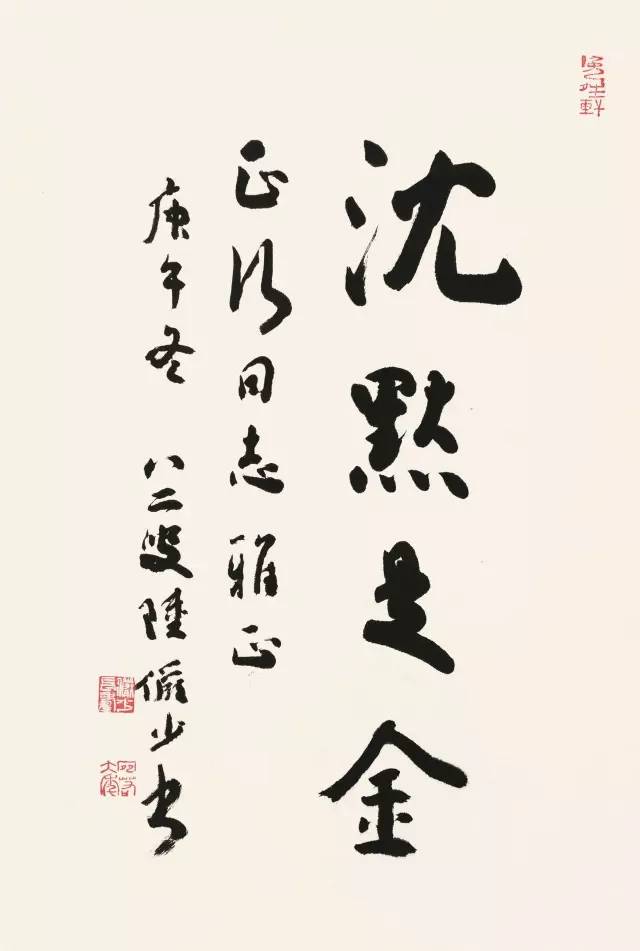 沈默是金
正 同志雅正
庚午冬 八二叟陸儼少書